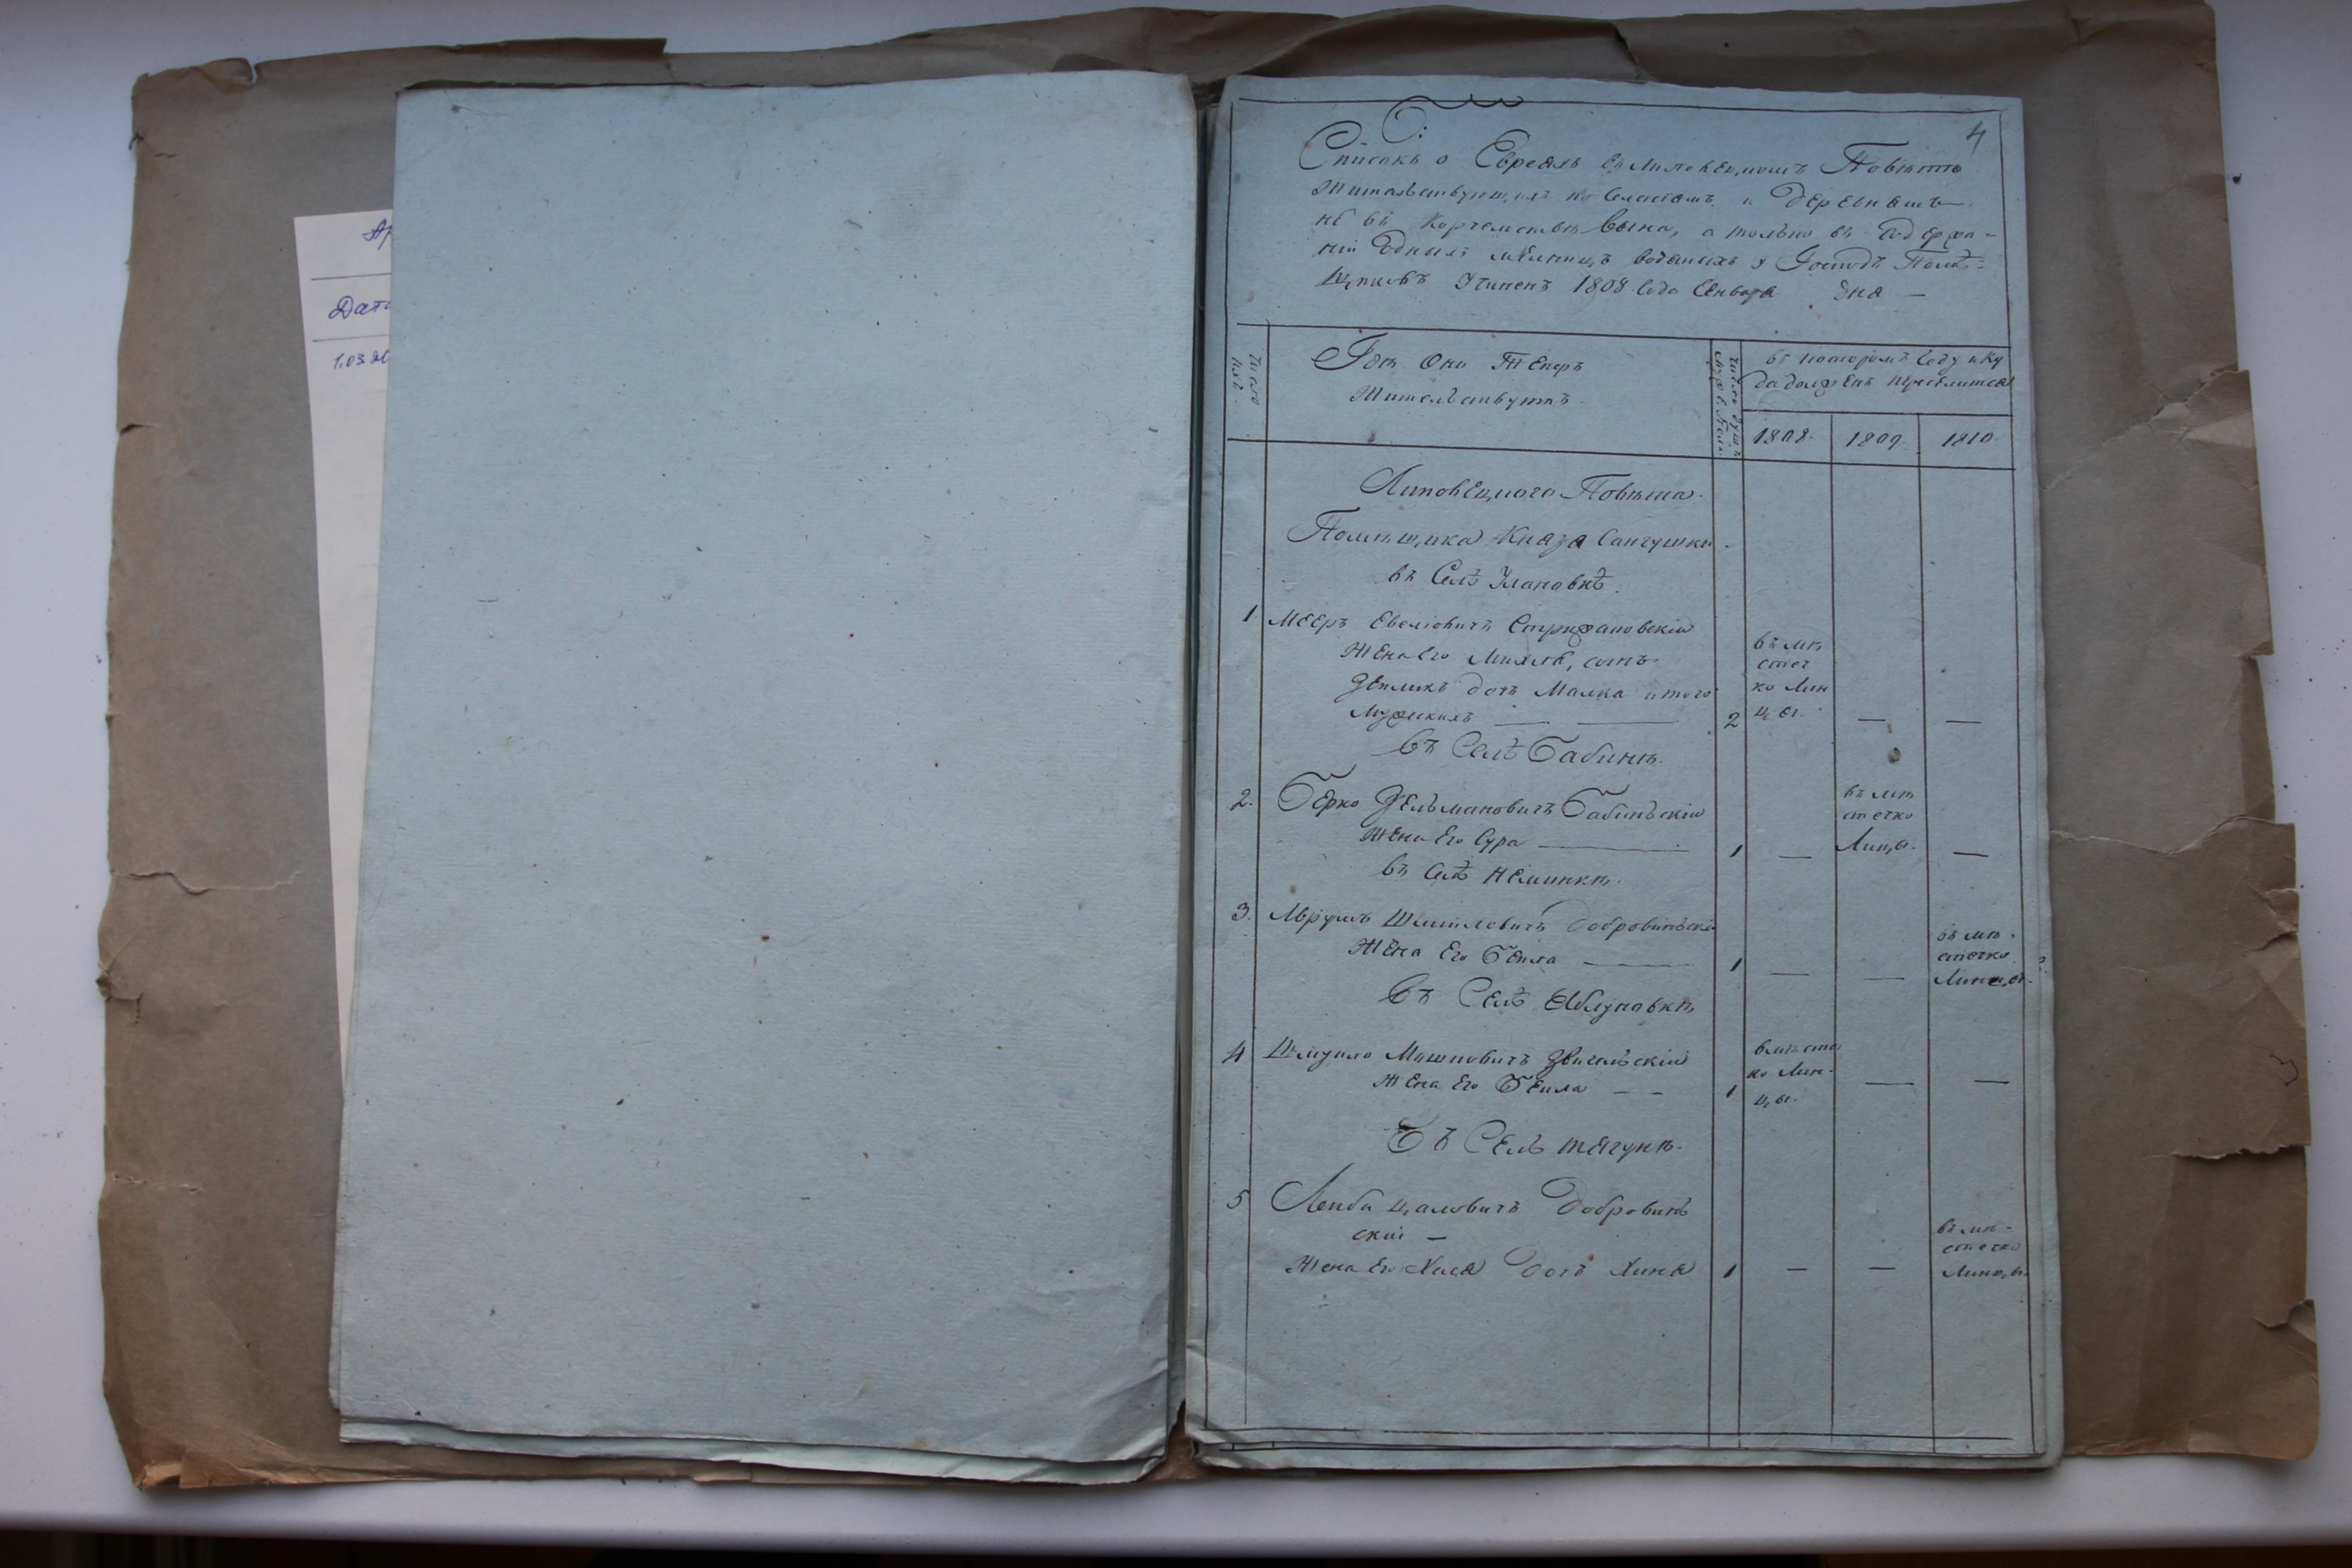 Ар
Дата
1.03.20
4
Списокъ о Евреяхъ въ Липовецкомъ Повѣтѣ
Жительствующихъ по Селенiямъ и Деревнямъ
не въ Корчемствѣ вина, а только въ Содержа-
нiи Однихъ мельницъ водяныхъ у Господъ Помѣ-
щиковъ Учиненъ 1808 Года Генваря дня —
Число
ихъ.
Гдѣ Они Теперъ
Жительствуютъ.
Число душъ
муж: пола.
въ которомъ Году и Ку
да долженъ переселится
1808.
1809.
1810.
Липовецкого Повѣта.
Помѣщика Князя Сангушки
въ Селѣ
1 Мееръ Евелiовичъ Стрижановскiй
Жена Его сынъ
Зейликъ дочъ Малка итого
Мужескихъ — — 2
въ мѣ
стеч
ко Лин
цы.
— —
Въ Селѣ Бабинѣ.
2. Берко Зельмановичъ Бабинъскiй
Жена Его Сура — 1 —
въ мѣ
стечко
Линцы.
—
въ Селѣ Неминкѣ.
3. Шмилiовичъ Добровинъскiй
Жена Его Бейла — 1 — —
въ мѣ-
стечко
Линцы.
Въ Селѣ Яблуновкѣ
4 Шмуйло Мошковичъ Звигельскiй
Жена Его Бейла — — 1
вмѣстеч
ко Лин-
цы.
— —
Въ Селѣ Тягунѣ.
5 Лейба Цаловичъ Добровинъ
скiй —
Жена Его Хася Дочъ Хина 1 — —
въ мѣ-
стечко
Линцы.